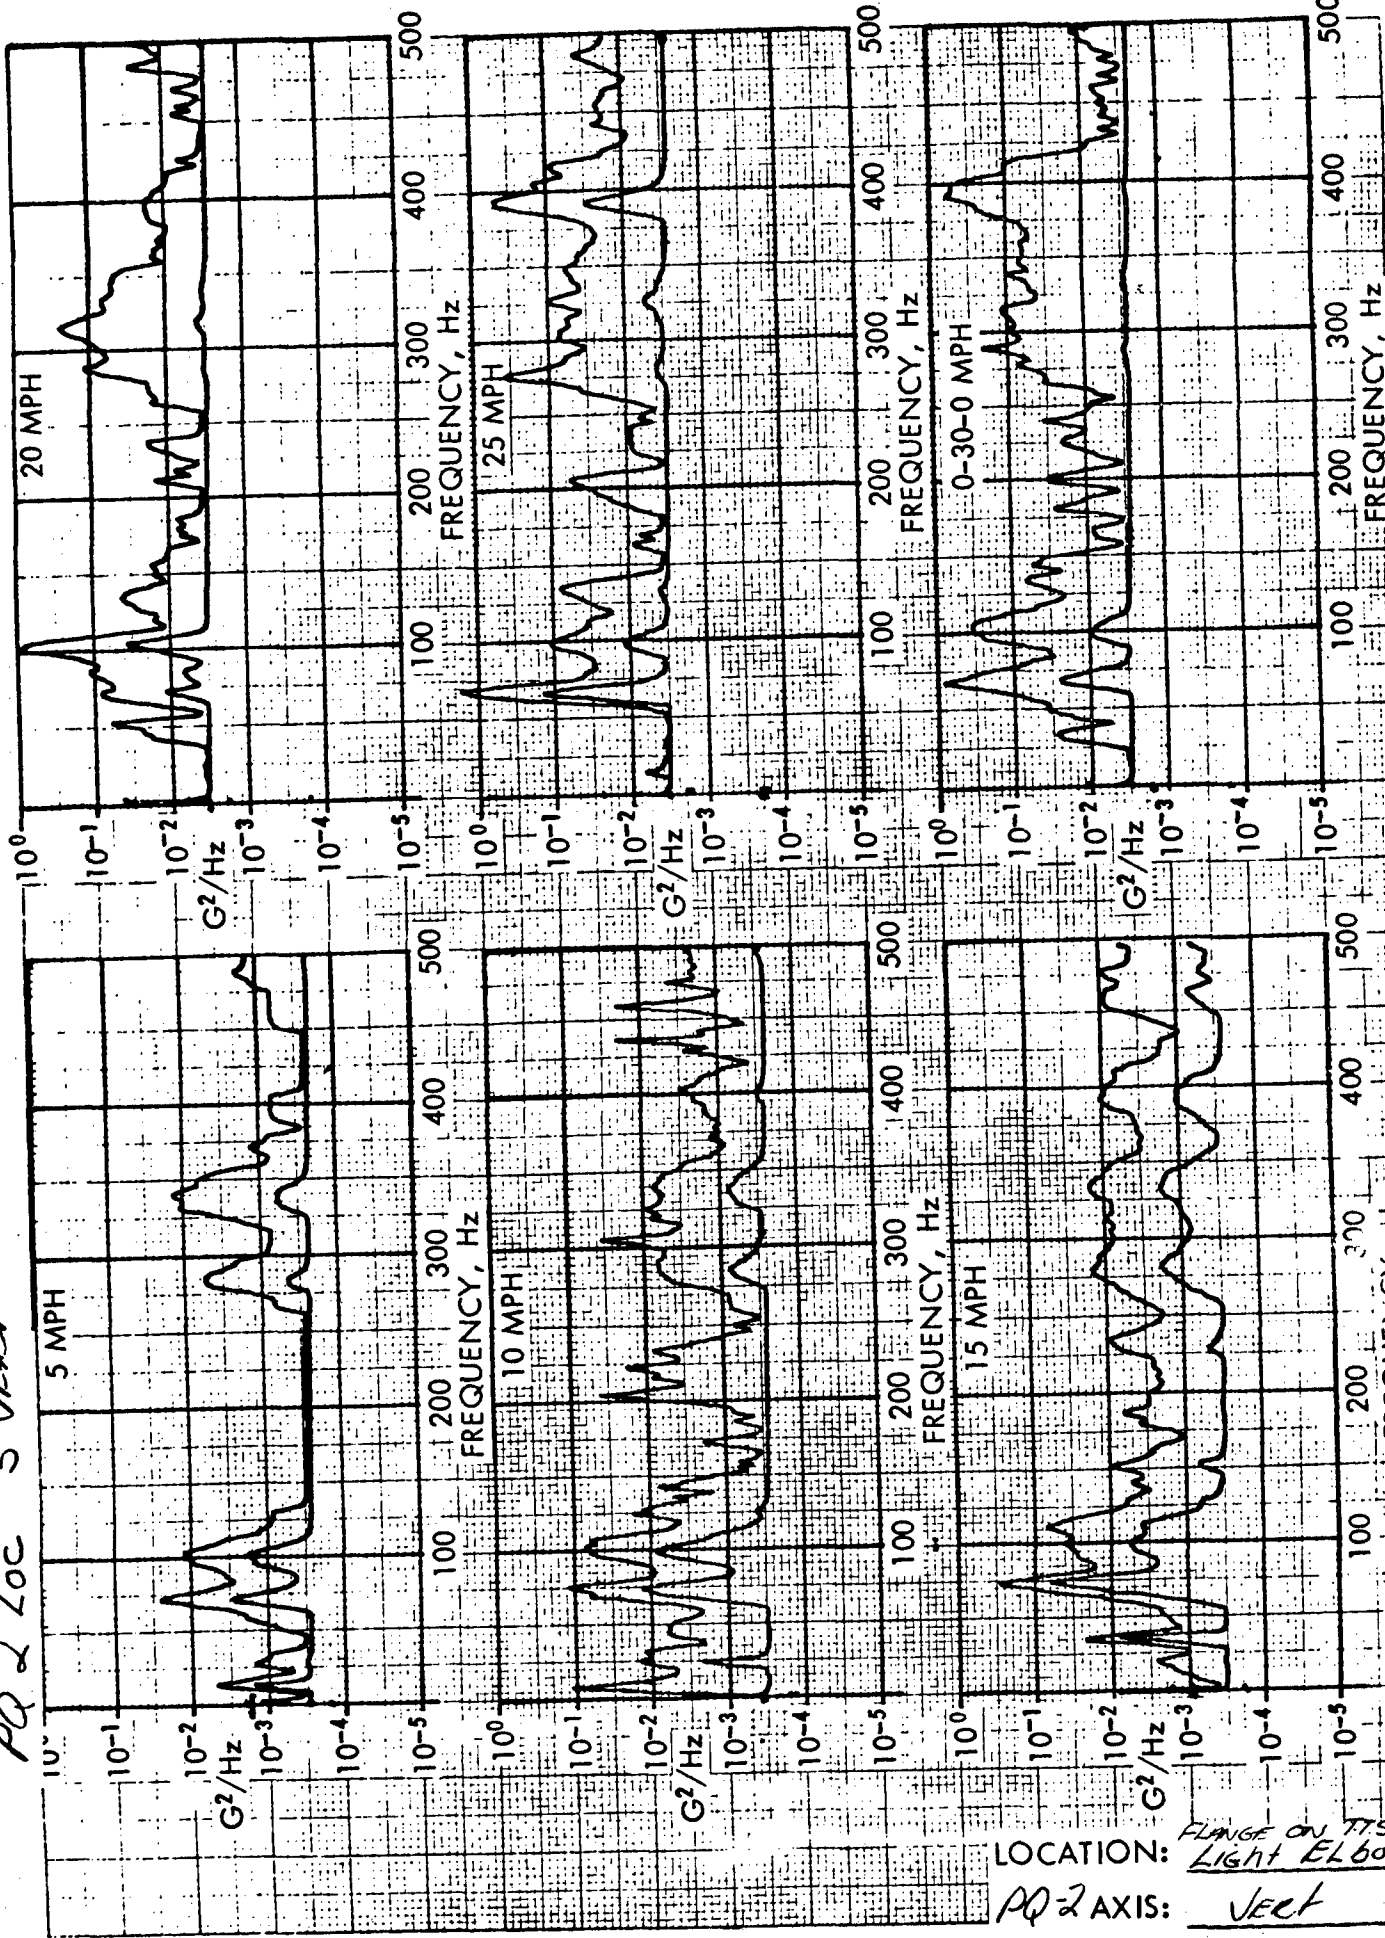 PQ 2 LOC 3 VERT
5 MPH
10⁻¹
10⁻²
G²/Hz
10⁻³
10⁻⁴
10⁻⁵
100 200 300 400 500
FREQUENCY, Hz
10 MPH
10⁰
10⁻¹
10⁻²
G²/Hz
10⁻³
10⁻⁴
10⁻⁵
100 200 300 400 500
FREQUENCY, Hz
15 MPH
10⁰
10⁻¹
10⁻²
G²/Hz
10⁻³
10⁻⁴
10⁻⁵
100 200 400 500
20 MPH
10⁰
10⁻¹
10⁻²
G²/Hz
10⁻³
10⁻⁴
10⁻⁵
100 200 300 400 500
FREQUENCY, Hz
25 MPH
10⁰
10⁻¹
10⁻²
G²/Hz
10⁻³
10⁻⁴
10⁻⁵
100 200 300 400 500
FREQUENCY, Hz
0-30-0 MPH
10⁰
10⁻¹
10⁻²
G²/Hz
10⁻³
10⁻⁴
10⁻⁵
100 200 300 400 500
FREQUENCY, Hz
LOCATION: FLANGE ON TTS
Light ELbo
PQ-2 AXIS: Vert